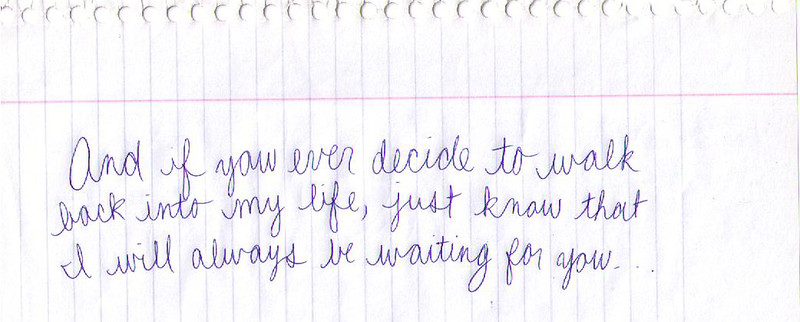 And if you ever decide to walk
back into my life, just know that
I will always be waiting for you...